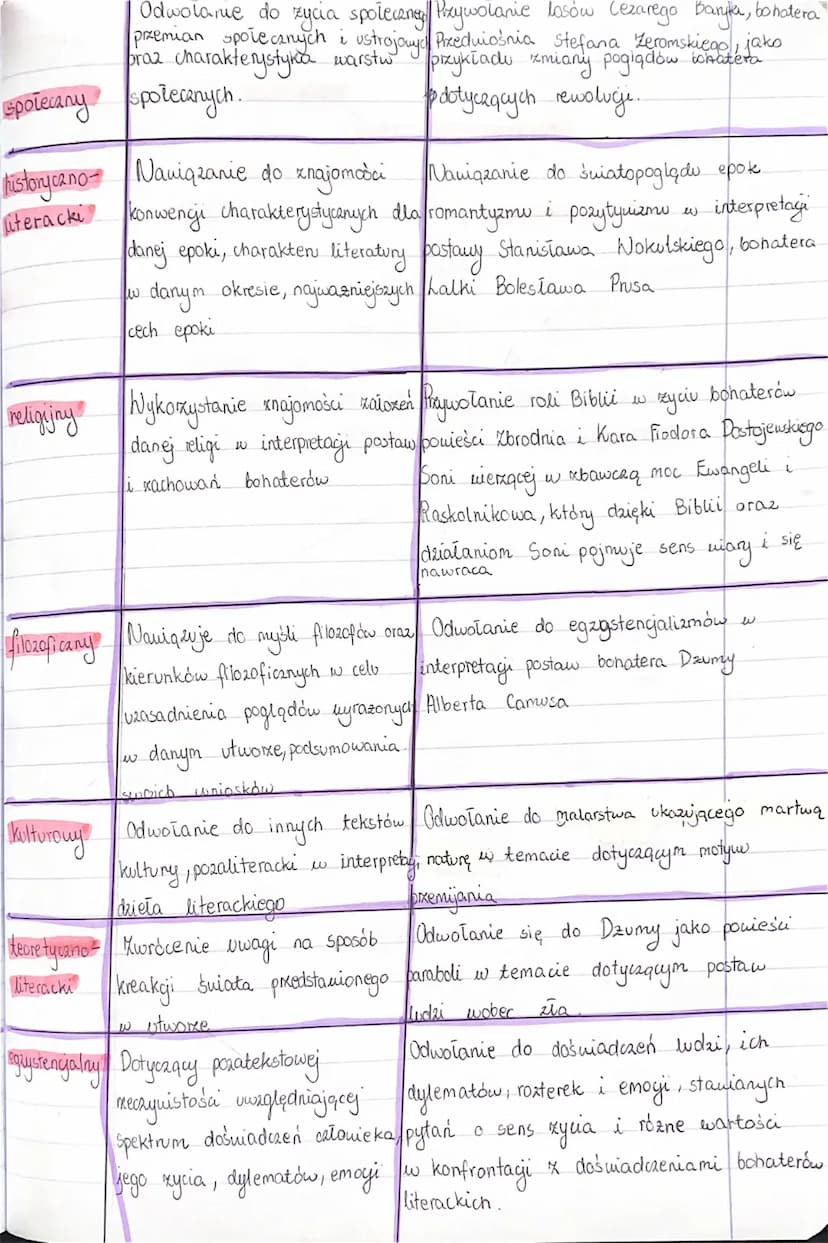 społeczny
Odwołanie do życia społecznego
przemian społecznych i ustrojowych
oraz charakterystyka warstw
społecznych.
Przywołanie losów Cezarego Baryki, bohatera
Przedwiośnia Stefana Żeromskiego, jako
przykładu zmiany poglądów bohatera
dotyczących rewolucji.
historyczno-
literacki
Nawiązanie do znajomości
konwencji charakterystycznych dla
danej epoki, charakteru literatury
w danym okresie, najważniejszych
cech epoki
Nawiązanie do światopoglądu epok
romantyzmu i pozytywizmu w interpretacji
postawy Stanisława Wokulskiego, bohatera
Lalki Bolesława Prusa
religijny
Wykorzystanie znajomości założeń
danej religi w interpretacji postaw
i zachowań bohaterów
Przywołanie roli Biblii w życiu bohaterów
powieści Zbrodnia i Kara Fiodora Dostojewskiego
Soni wierzącej w zbawczą moc Ewangeli i
Raskolnikowa, który dzięki Biblii oraz
działaniom Soni pojmuje sens wiary i się
nawraca
filozoficzny
Nawiązuje do myśli filozofów oraz
kierunków filozoficznych w celu
uzasadnienia poglądów wyrażonych
w danym utworze, podsumowania
swoich wniosków
Odwołanie do egzystencjalizmów w
interpretacji postaw bohatera Dżumy
Alberta Camusa
kulturowy
Odwołanie do innych tekstów
kultury, pozaliteracki w interpretacji
dzieła literackiego
Odwołanie do malarstwa ukazującego martwą
naturę w temacie dotyczącym motyw
przemijania
teoretyczno-
literacki
Zwrócenie uwagi na sposób
kreakcji świata przedstawionego
w utworze
Odwołanie się do Dżumy jako powieści
paraboli w temacie dotyczącym postaw
ludzi wobec zła
egzystencjalny
Dotyczący pozatekstowej
rzeczywistości uwzględniającej
spektrum doświadczeń człowieka,
jego życia, dylematów, emocji
Odwołanie do doświadczeń ludzi, ich
dylematów, rozterek i emocji, stawianych
pytań o sens życia i różne wartości
w konfrontacji z doświadczeniami bohaterów
literackich.